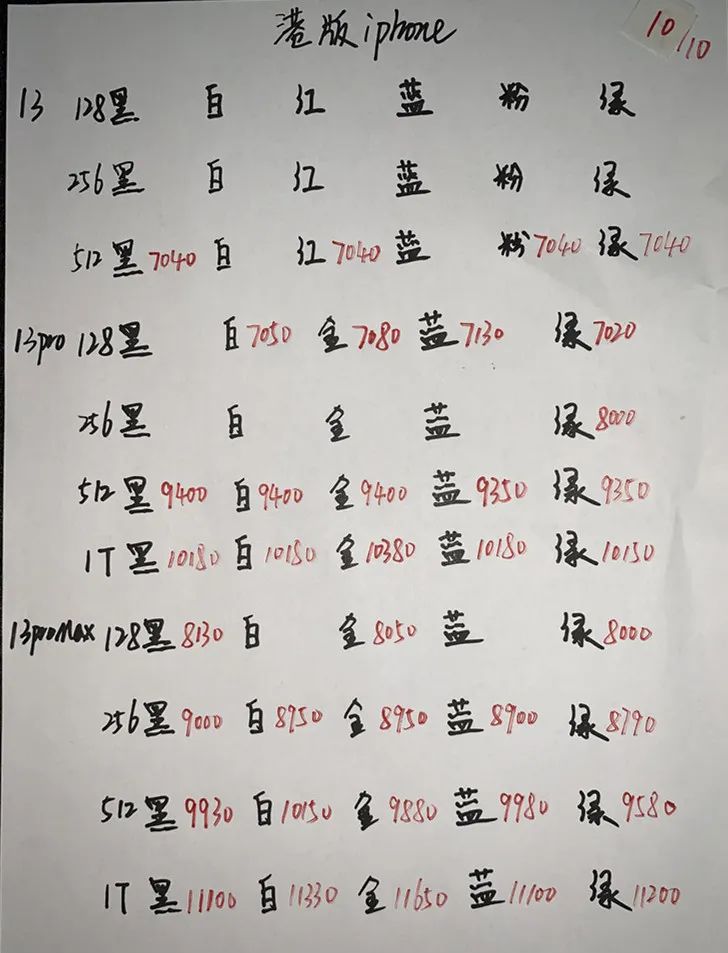 港版iphone 10/10
13 128黑 白 红 蓝 粉 绿
256黑 白 红 蓝 粉 绿
512黑7040 白 红7040 蓝 粉7040 绿7040
13pro 128黑 白7050 金7080 蓝7130 绿7020
256黑 白 金 蓝 绿8000
512黑9400 白9400 金9400 蓝9350 绿9350
1T黑10180 白10180 金10380 蓝10180 绿10150
13proMax 128黑8130 白 金8050 蓝 绿8000
256黑9000 白8950 金8950 蓝8900 绿8790
512黑9930 白10150 金9880 蓝9980 绿9580
1T黑11100 白11330 金11650 蓝11100 绿11200